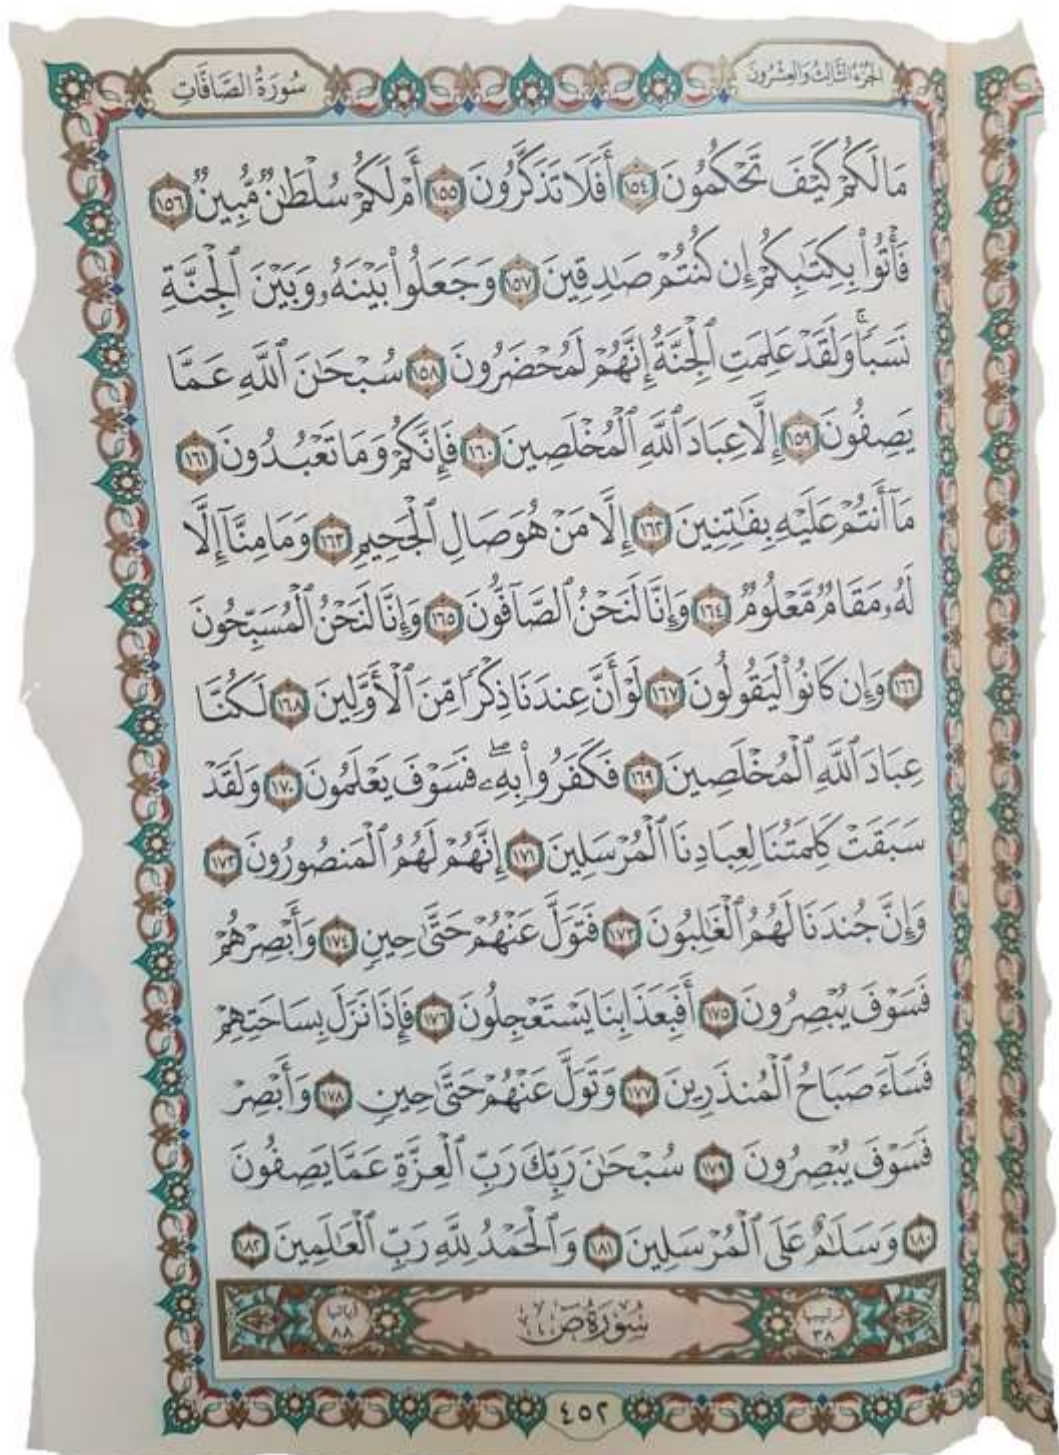 الجُزْءُ الثَّالِثُ وَالعِشْرُونَ
سُورَةُ الصَّافَّاتِ
مَا لَكُمْ كَيْفَ تَحْكُمُونَ ١٥٤ أَفَلَا تَذَكَّرُونَ ١٥٥ أَمْ لَكُمْ سُلْطَٰنٌ مُّبِينٌ ١٥٦
فَأْتُوا۟ بِكِتَٰبِكُمْ إِن كُنتُمْ صَٰدِقِينَ ١٥٧ وَجَعَلُوا۟ بَيْنَهُۥ وَبَيْنَ ٱلْجِنَّةِ
نَسَبًاۚ وَلَقَدْ عَلِمَتِ ٱلْجِنَّةُ إِنَّهُمْ لَمُحْضَرُونَ ١٥٨ سُبْحَٰنَ ٱللَّهِ عَمَّا
يَصِفُونَ ١٥٩ إِلَّا عِبَادَ ٱللَّهِ ٱلْمُخْلَصِينَ ١٦٠ فَإِنَّكُمْ وَمَا تَعْبُدُونَ ١٦١
مَآ أَنتُمْ عَلَيْهِ بِفَٰتِنِينَ ١٦٢ إِلَّا مَنْ هُوَ صَالِ ٱلْجَحِيمِ ١٦٣ وَمَا مِنَّآ إِلَّا
لَهُۥ مَقَامٌ مَّعْلُومٌ ١٦٤ وَإِنَّا لَنَحْنُ ٱلصَّآفُّونَ ١٦٥ وَإِنَّا لَنَحْنُ ٱلْمُسَبِّحُونَ
١٦٦ وَإِن كَانُوا۟ لَيَقُولُونَ ١٦٧ لَوْ أَنَّ عِندَنَا ذِكْرًا مِّنَ ٱلْأَوَّلِينَ ١٦٨ لَكُنَّا
عِبَادَ ٱللَّهِ ٱلْمُخْلَصِينَ ١٦٩ فَكَفَرُوا۟ بِهِۦۖ فَسَوْفَ يَعْلَمُونَ ١٧٠ وَلَقَدْ
سَبَقَتْ كَلِمَتُنَا لِعِبَادِنَا ٱلْمُرْسَلِينَ ١٧١ إِنَّهُمْ لَهُمُ ٱلْمَنصُورُونَ ١٧٢
وَإِنَّ جُندَنَا لَهُمُ ٱلْغَٰلِبُونَ ١٧٣ فَتَوَلَّ عَنْهُمْ حَتَّىٰ حِينٍ ١٧٤ وَأَبْصِرْهُمْ
فَسَوْفَ يُبْصِرُونَ ١٧٥ أَفَبِعَذَابِنَا يَسْتَعْجِلُونَ ١٧٦ فَإِذَا نَزَلَ بِسَاحَتِهِمْ
فَسَآءَ صَبَاحُ ٱلْمُنذَرِينَ ١٧٧ وَتَوَلَّ عَنْهُمْ حَتَّىٰ حِينٍ ١٧٨ وَأَبْصِرْ
فَسَوْفَ يُبْصِرُونَ ١٧٩ سُبْحَٰنَ رَبِّكَ رَبِّ ٱلْعِزَّةِ عَمَّا يَصِفُونَ
١٨٠ وَسَلَٰمٌ عَلَى ٱلْمُرْسَلِينَ ١٨١ وَٱلْحَمْدُ لِلَّهِ رَبِّ ٱلْعَٰلَمِينَ ١٨٢
ترتيبها ٣٨ سُورَةُ صٓ آياتها ٨٨
٤٥٢